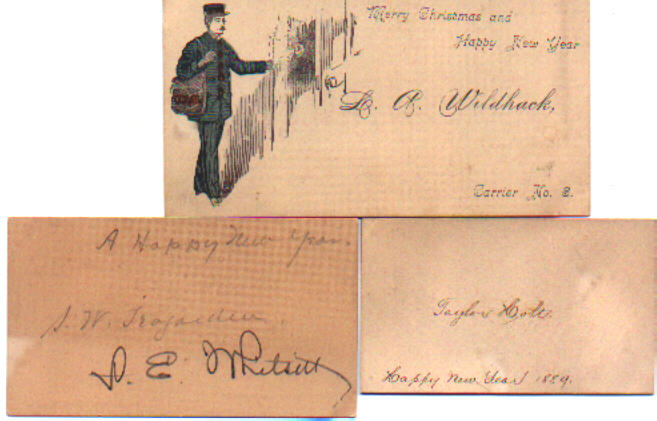 Merry Christmas and
Happy New Year
L. A. Wildhack,
Carrier No. 2.
A Happy New Year.
J. W. Tragarden.
Happy New Year 1889.